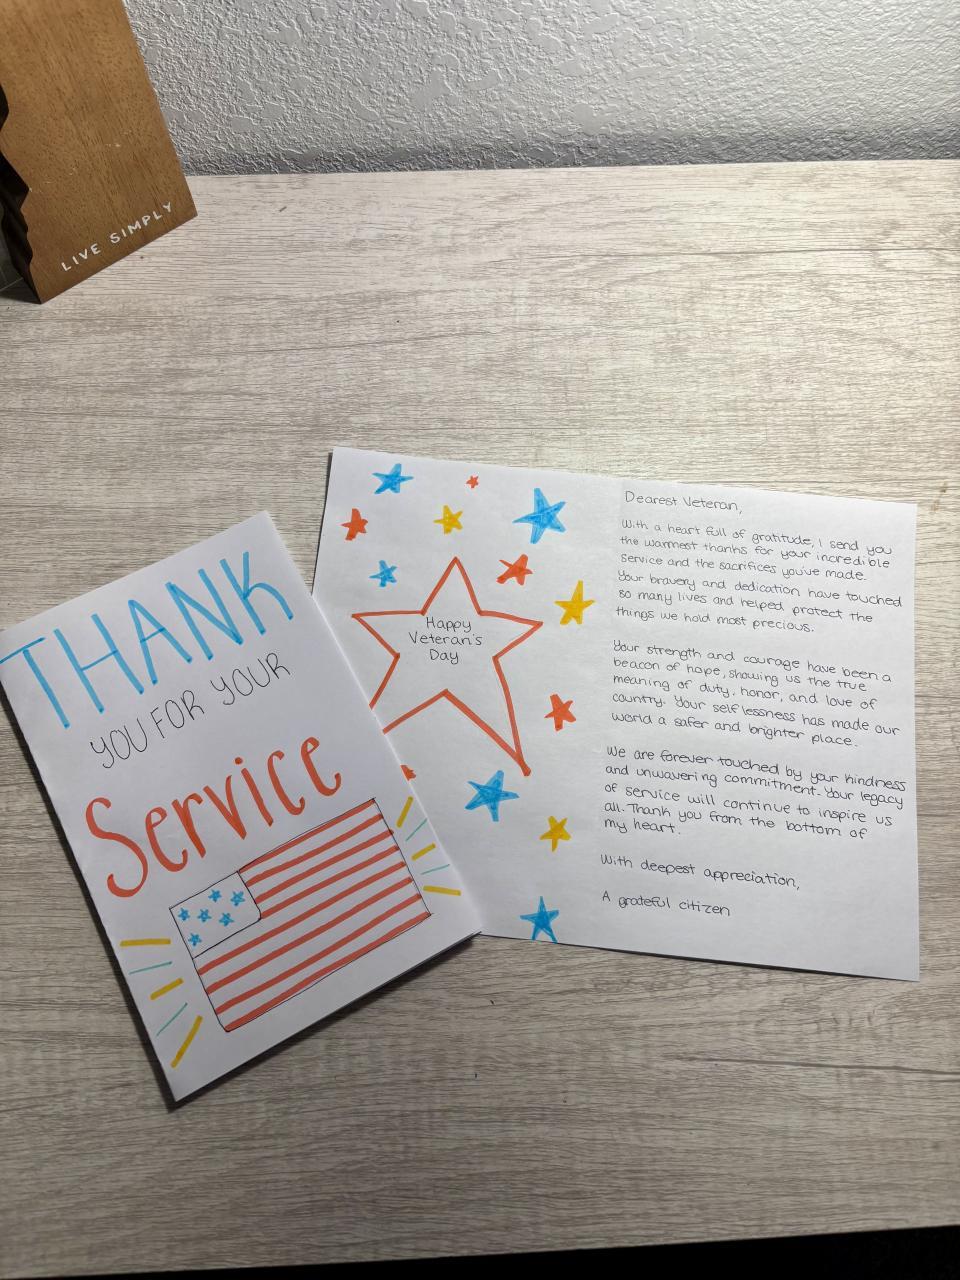 LIVE SIMPLY
THANK
YOU FOR YOUR
Service
Happy
Veteran's
Day
Dearest Veteran,
With a heart full of gratitude, I send you
the warmest thanks for your incredible
service and the sacrifices you've made.
Your bravery and dedication have touched
so many lives and helped protect the
things we hold most precious.
Your strength and courage have been a
beacon of hope, showing us the true
meaning of duty, honor, and love of
country. Your selflessness has made our
world a safer and brighter place.
We are forever touched by your kindness
and unwavering commitment. Your legacy
of service will continue to inspire us
all. Thank you from the bottom of
my heart.
With deepest appreciation,
A grateful citizen